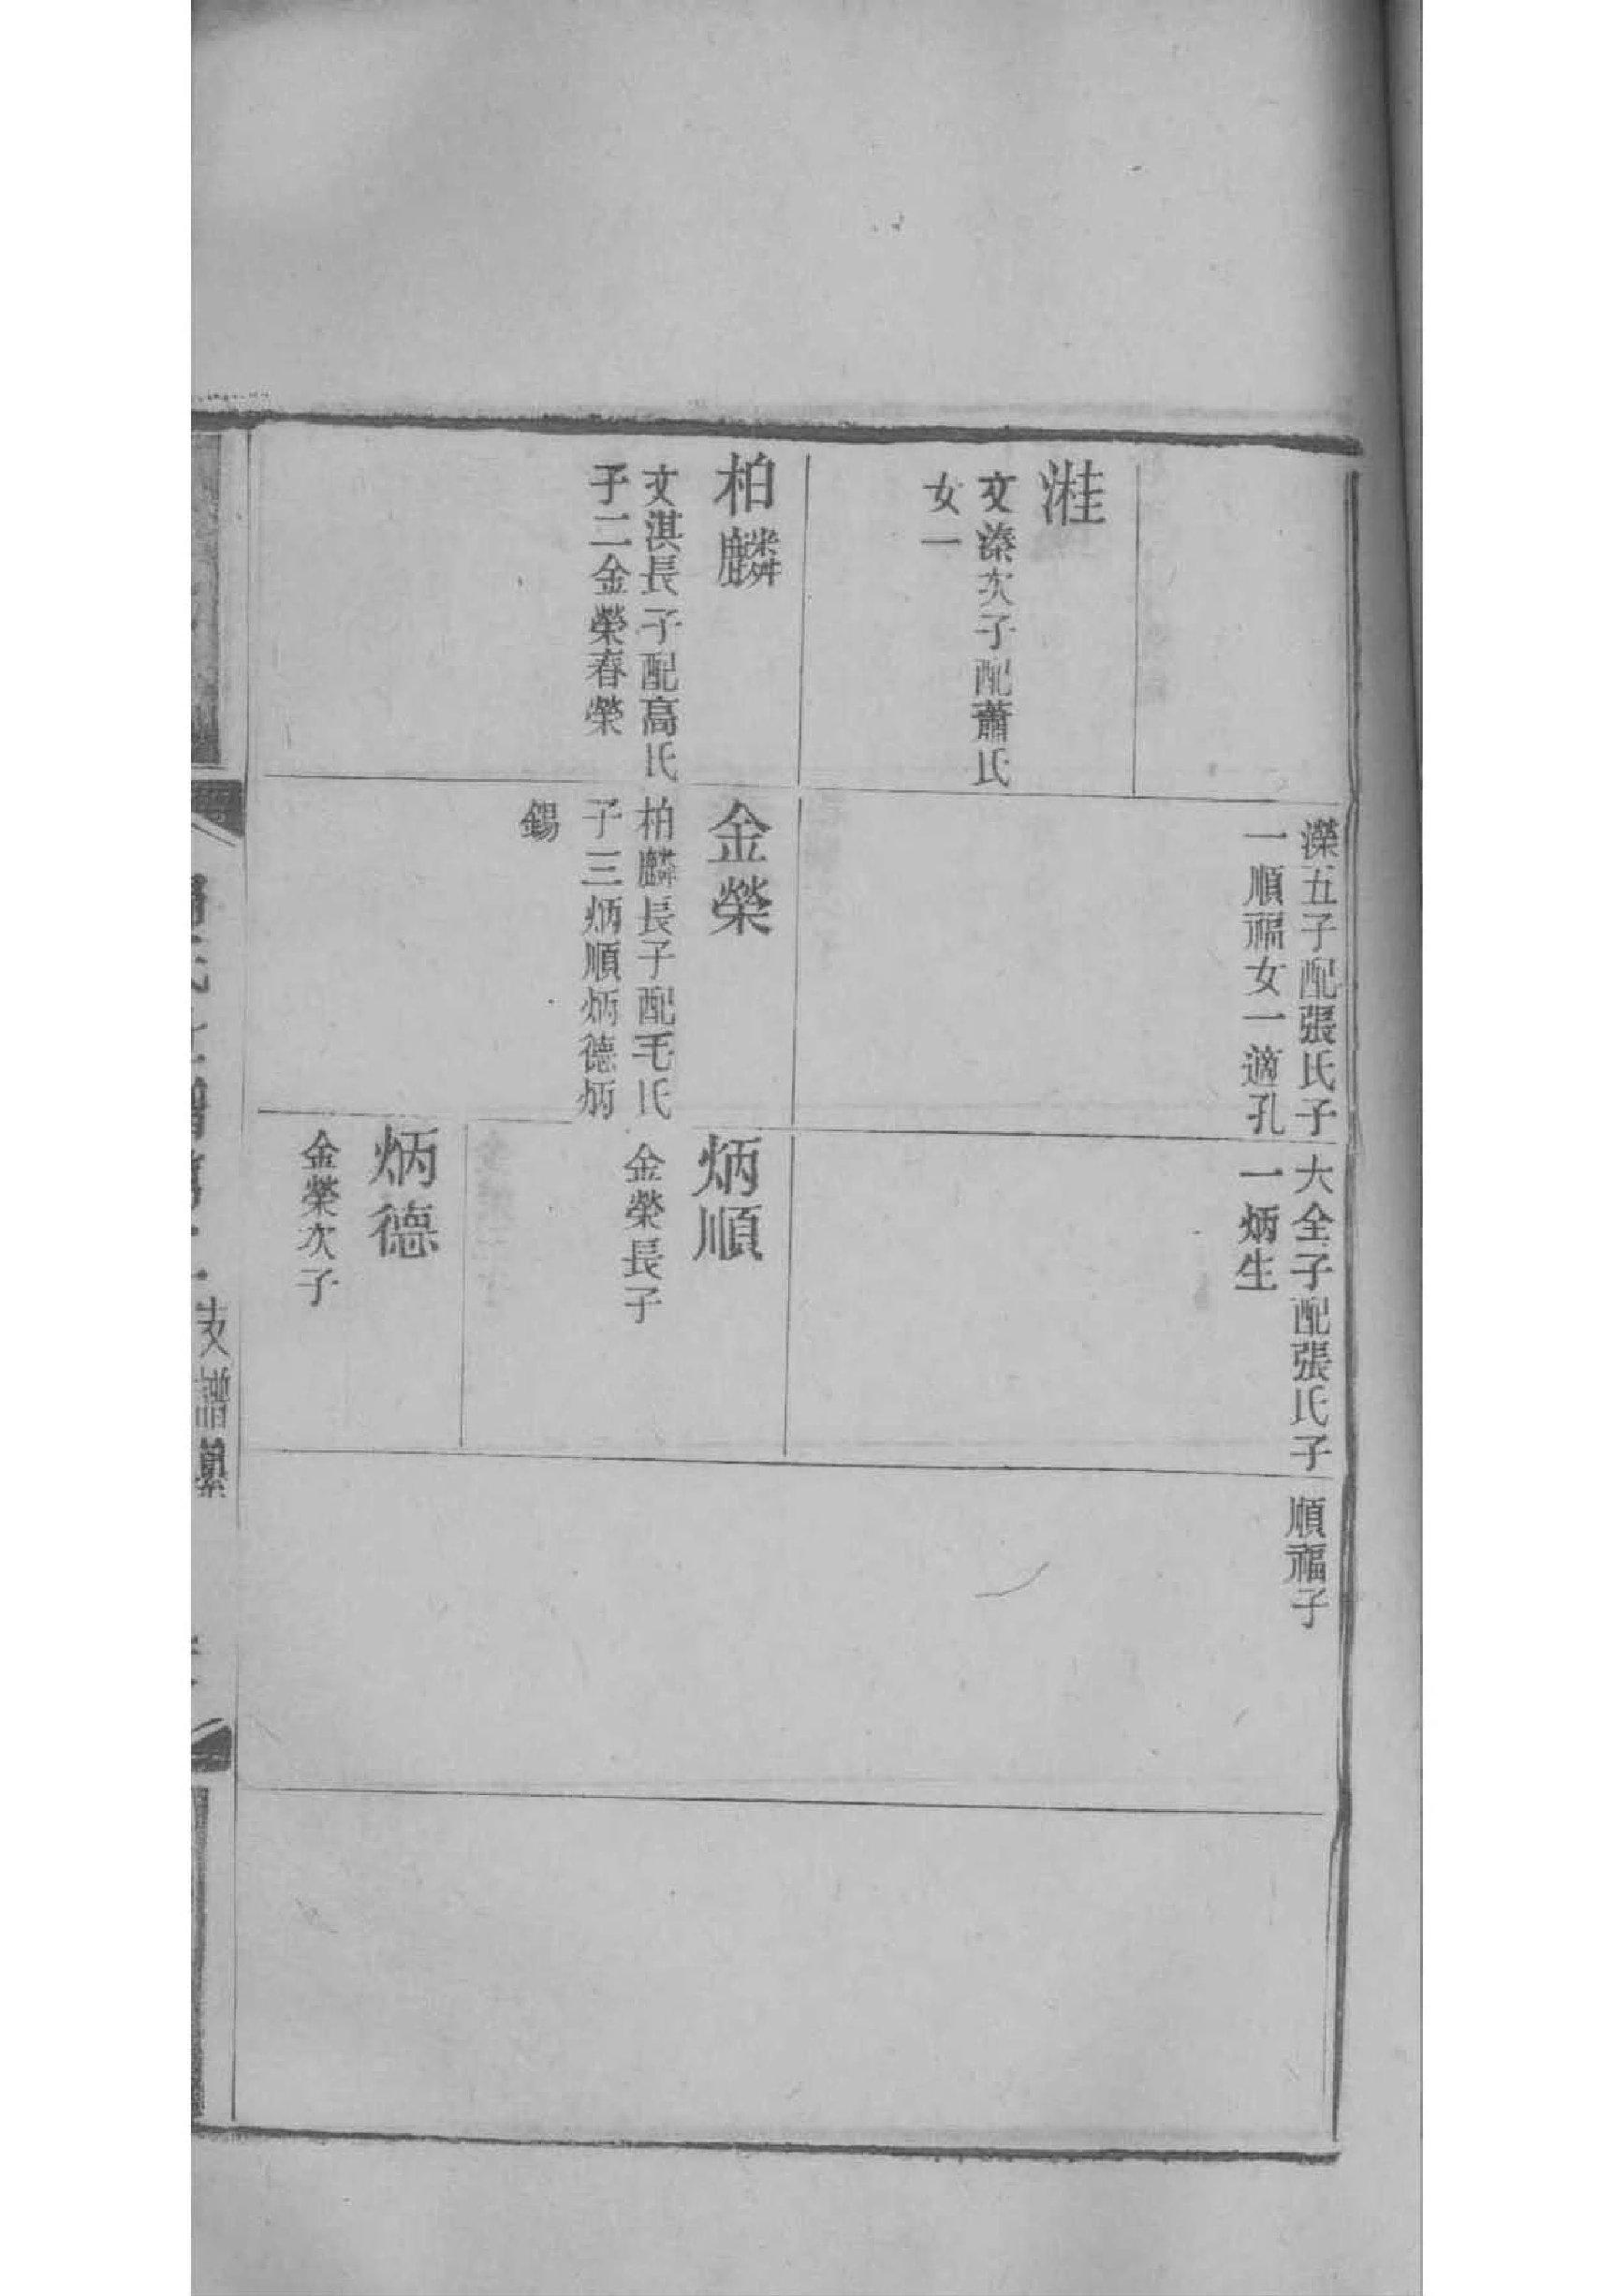 洼
文溱次子配蕭氏
女一
柏麟
文淇長子配高氏
子二金榮春榮
濼五子配張氏子
一順福女一適孔
金榮
柏麟長子配毛氏
子三炳順炳德炳
錫
大全子配張氏子
一炳生
炳順
金榮長子
炳德
金榮次子
順福子
支譜纂